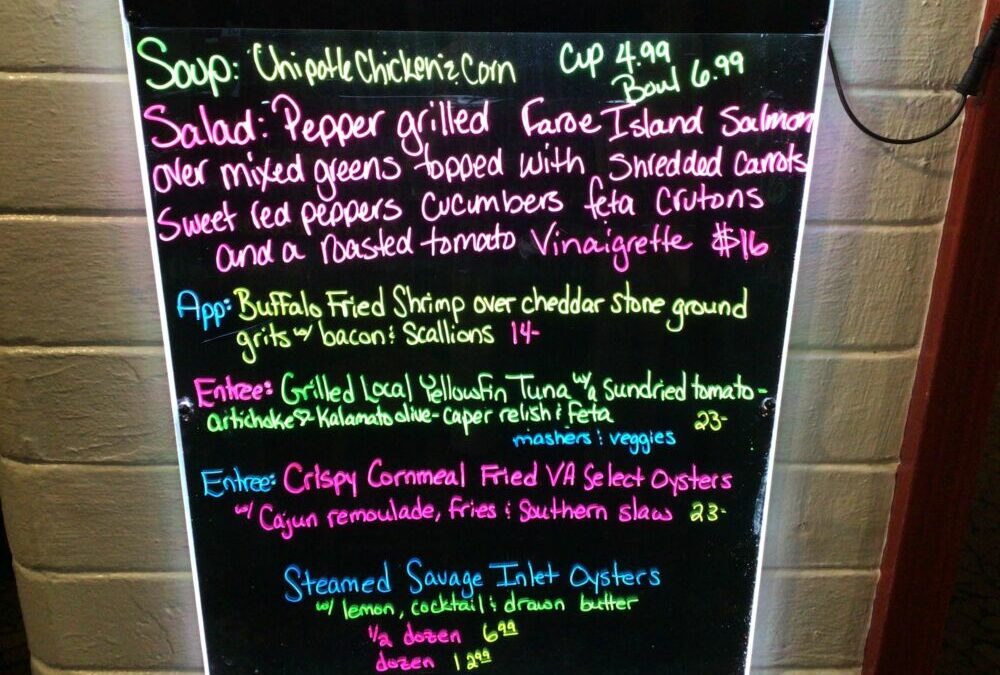 Soup: Chipotle Chicken & Corn Cup 4.99
Bowl 6.99
Salad: Pepper grilled Faroe Island Salmon
over mixed greens topped with shredded carrots
sweet red peppers cucumbers feta crutons
and a roasted tomato Vinaigrette $16
App: Buffalo Fried Shrimp over cheddar stone ground
grits w/ bacon & scallions 14-
Entree: Grilled Local Yellowfin Tuna w/ a sundried tomato-
artichoke & Kalamato olive-caper relish & feta 23-
mashers & veggies
Entree: Crispy Cornmeal Fried VA Select Oysters
w/ Cajun remoulade, fries & Southern slaw 23-
Steamed Savage Inlet Oysters
w/ lemon, cocktail & drawn butter
1/2 dozen 6.99
dozen 12.99